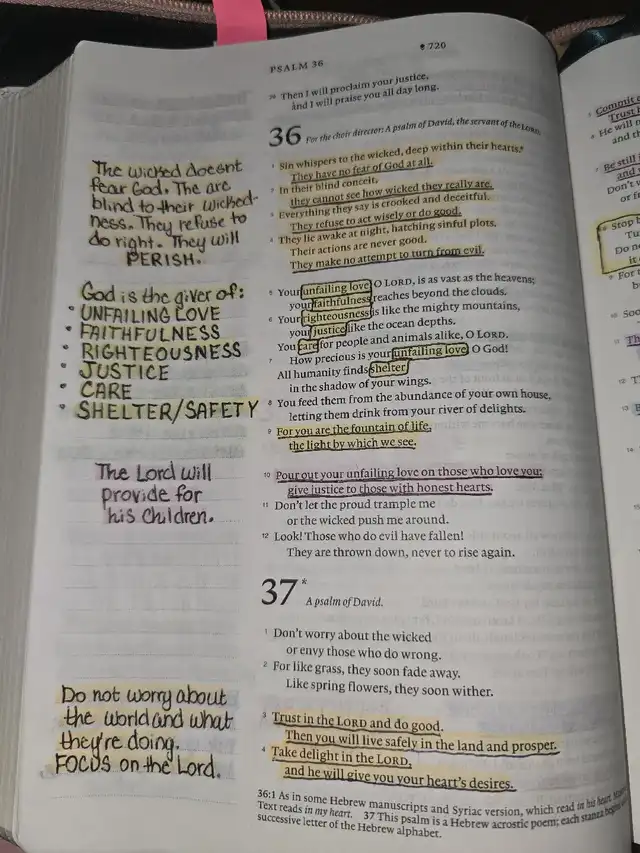 PSALM 36
720
28 Then I will proclaim your justice,
and I will praise you all day long.
36 For the choir director: A psalm of David, the servant of the LORD.
1 Sin whispers to the wicked, deep within their hearts.*
They have no fear of God at all.
2 In their blind conceit,
they cannot see how wicked they really are.
3 Everything they say is crooked and deceitful.
They refuse to act wisely or do good.
4 They lie awake at night, hatching sinful plots.
Their actions are never good.
They make no attempt to turn from evil.
5 Your unfailing love, O LORD, is as vast as the heavens;
your faithfulness reaches beyond the clouds.
6 Your righteousness is like the mighty mountains,
your justice like the ocean depths.
You care for people and animals alike, O LORD.
7 How precious is your unfailing love, O God!
All humanity finds shelter
in the shadow of your wings.
8 You feed them from the abundance of your own house,
letting them drink from your river of delights.
9 For you are the fountain of life,
the light by which we see.
10 Pour out your unfailing love on those who love you;
give justice to those with honest hearts.
11 Don't let the proud trample me
or the wicked push me around.
12 Look! Those who do evil have fallen!
They are thrown down, never to rise again.
37* A psalm of David.
1 Don't worry about the wicked
or envy those who do wrong.
2 For like grass, they soon fade away.
Like spring flowers, they soon wither.
3 Trust in the LORD and do good.
Then you will live safely in the land and prosper.
4 Take delight in the LORD,
and he will give you your heart's desires.
36:1 As in some Hebrew manuscripts and Syriac version, which read in his heart.
Text reads in my heart. 37 This psalm is a Hebrew acrostic poem; each stanza begins
successive letter of the Hebrew alphabet.
The wicked doesnt
fear God. The are
blind to their wicked-
ness. They refuse to
do right. They will
PERISH.
God is the giver of:
• UNFAILING LOVE
• FAITHFULNESS
• RIGHTEOUSNESS
• JUSTICE
• CARE
• SHELTER/SAFETY
The Lord will
provide for
his children.
Do not worry about
the world and what
they're doing.
FOCUS on the Lord.
5 Commit
Trust
6 He will
and th
7 Be still
and
Don't
or f
Stop
Tu
Do n
it
9 For
b
10 Soo
11 Th
12 T
13
14
15